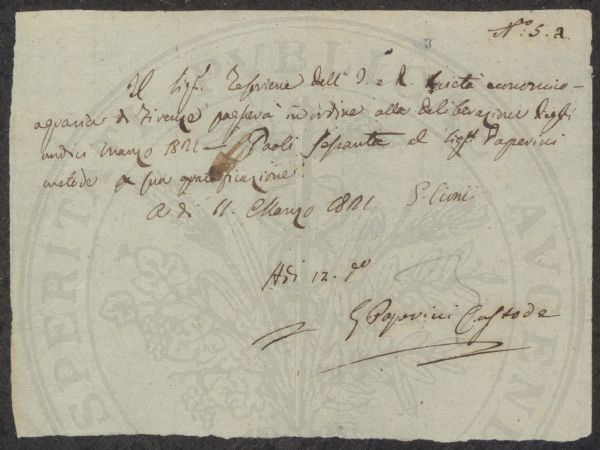 N.º 5. a
Il Sig.r Tesoriere dell' I. e R. Società economico-
agraria di Firenze pagherà in ordine alla deliberazione degli
undici marzo 1821 — Paoli Sessanta al Sig.r Paperini
custode p sua gratificazione.
A dì 11. Marzo 1821 G. Cioni
Adì 12. do
G Paperini Custode
PROSPERITATI PVBLICAE AVGENDAE